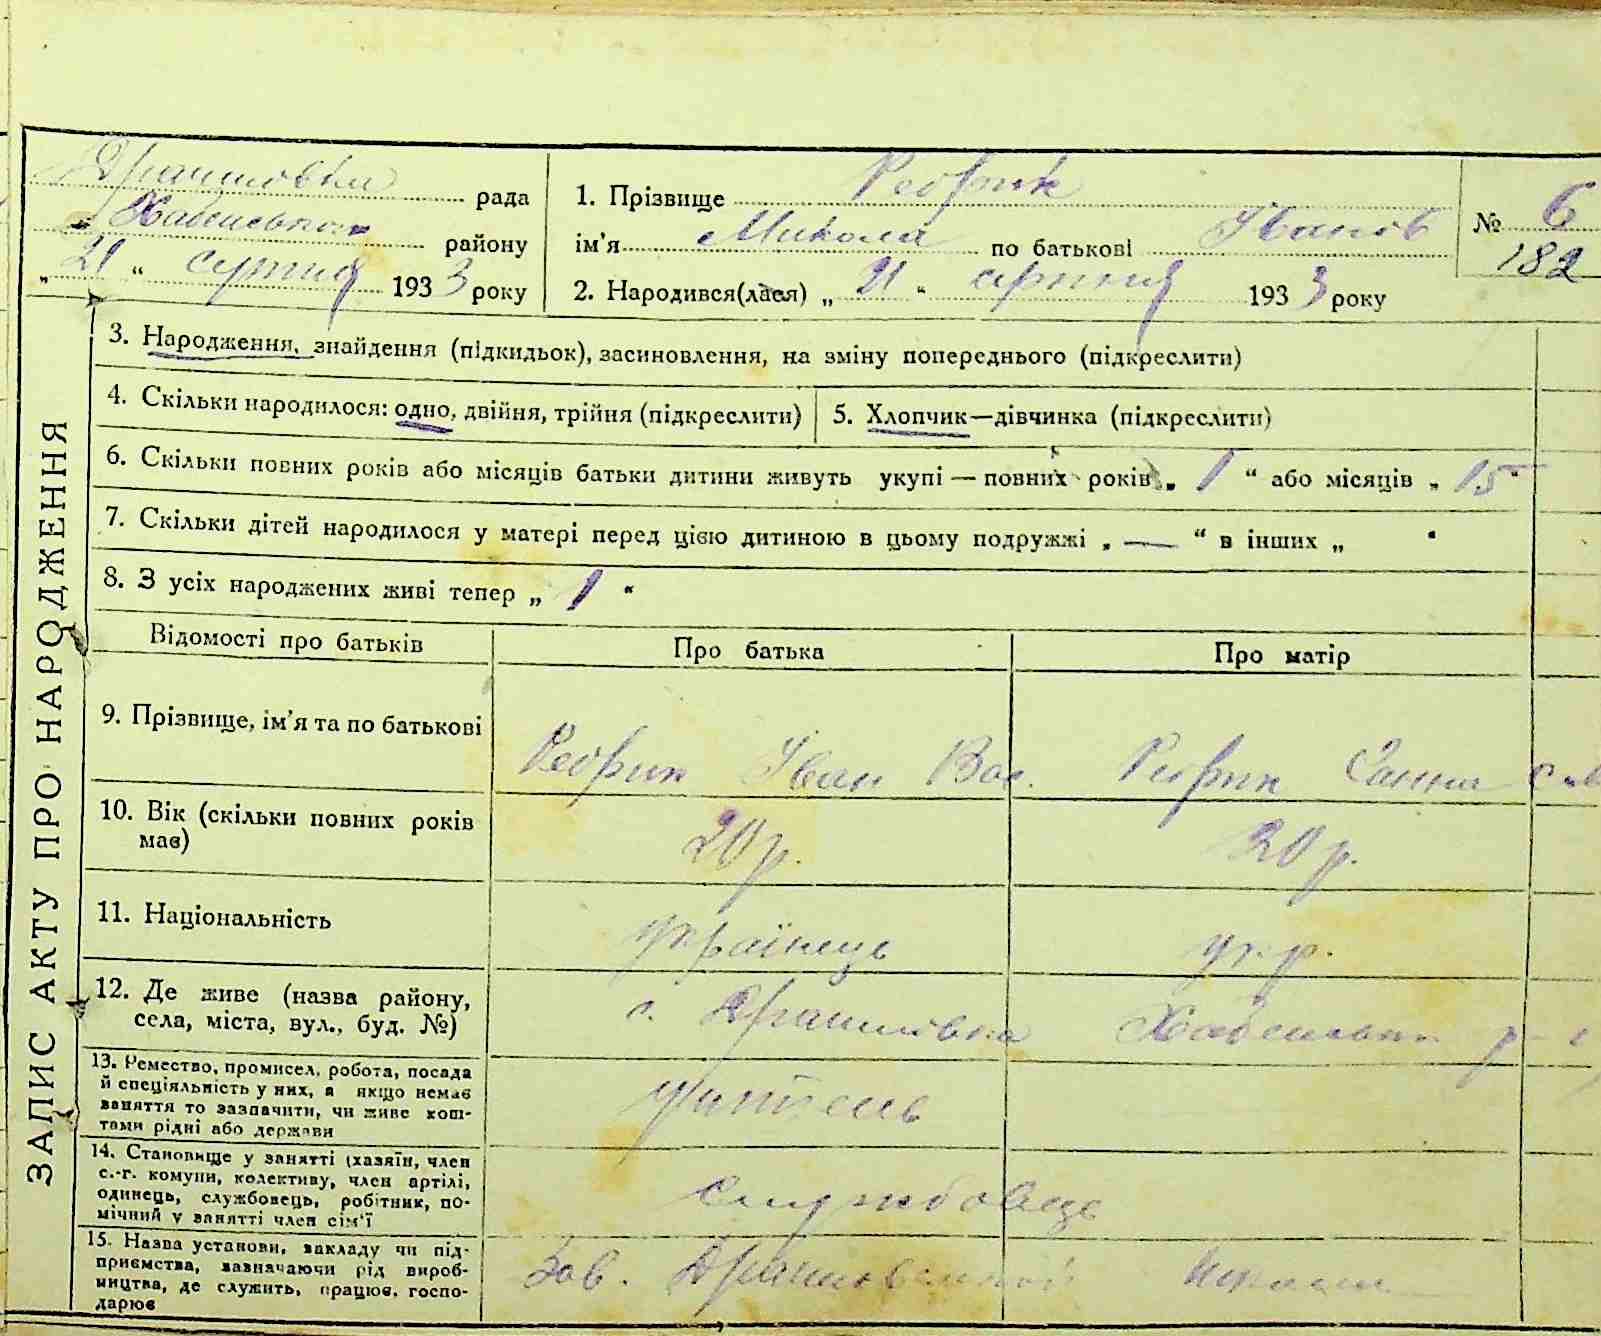 рада
району
„ 21 “ серпня 1933 року
1. Прізвище Ребрик
ім’я Микола по батькові Іванов
2. Народився(лася) „ 21 “ серпня 1933 року
№ 6
182
ЗАПИС АКТУ ПРО НАРОДЖЕННЯ
3. Народження, знайдення (підкидьок), засиновлення, на зміну попереднього (підкреслити)
4. Скільки народилося: одно, двійня, трійня (підкреслити)
5. Хлопчик—дівчинка (підкреслити)
6. Скільки повних років або місяців батьки дитини живуть укупі — повних років „ 1 “ або місяців „ 15 “
7. Скільки дітей народилося у матері перед цією дитиною в цьому подружжі „ — “ в інших „ “
8. З усіх народжених живі тепер „ 1 “
Відомості про батьків
Про батька
Про матір
9. Прізвище, ім’я та по батькові
Ребрик Іван Вас.
Ребрик Ганна
10. Вік (скільки повних років
має)
20 р.
20 р.
11. Національність
українець
укр.
12. Де живе (назва району,
села, міста, вул., буд. №)
с.
13. Ремество, промисел, робота, посада
й спеціяльність у них, а якщо немає
заняття то зазначити, чи живе кош-
тами рідні або держави
учитель
14. Становище у занятті (хазяїн, член
с.-г. комуни, колективу, член артілі,
одинець, службовець, робітник, по-
мічний у занятті член сім’ї
службовець
15. Назва установи, закладу чи під-
приємства, зазначаючи рід вироб-
ництва, де служить, працює, госпо-
дарює
Зав. школи